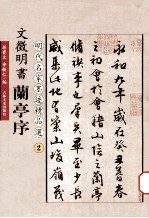 永和九年歲在癸丑暮春
之初會于會稽山陰之蘭亭
脩禊事也羣賢畢至少長
咸集此地有崇山峻嶺茂
明代名家墨迹精品選
2
文徵明書
蘭亭序